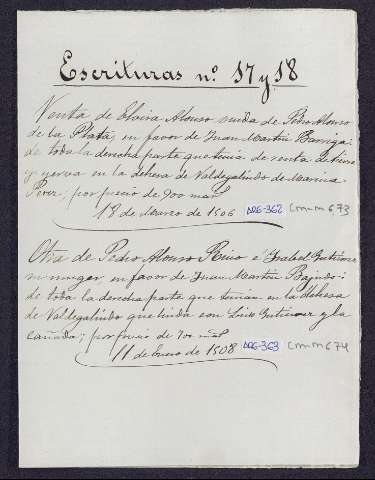 Escrituras nº. 17 y 18
Venta de Elvira Alonso viuda de Pedro Alonso
de la Plata, en favor de Juan Martin Barriga:
de toda la derecha parte que tenia de renta de
y yerva en la dehesa de Valdegalindo de Marina
Perez; por precio de 900 mrs.
18 de Marzo de 1506 DOG-362 cmnm 673
Otra de Pedro Alonso Rico é Ysabel Gutierrez
su muger, en favor de Juan Martin Bajudo:
de toda la derecha parte que tenian en la dehesa
de Valdegalindo que linda con Luis Gutierrez y la
cañada; por precio de 700 mrs.
11 de Enero de 1508 DOG-363 cmnm 674